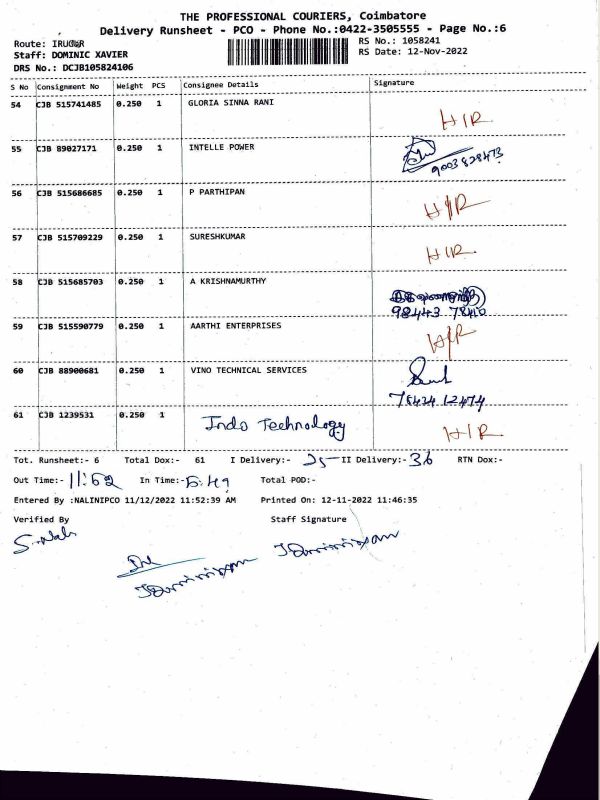 THE PROFESSIONAL COURIERS, Coimbatore
Delivery Runsheet - PCO - Phone No.:0422-3505555 - Page No.:6
Route: IRUGUR RS No.: 1058241
Staff: DOMINIC XAVIER RS Date: 12-Nov-2022
DRS No.: DCJB105824106
S No Consignment No Weight PCS Consignee Details Signature
54 CJB 515741485 0.250 1 GLORIA SINNA RANI H/R
55 CJB 89027171 0.250 1 INTELLE POWER 9003828473
56 CJB 515686685 0.250 1 P PARTHIPAN H/R
57 CJB 515709229 0.250 1 SURESHKUMAR H/R
58 CJB 515685703 0.250 1 A KRISHNAMURTHY
59 CJB 515590779 0.250 1 AARTHI ENTERPRISES H/R
60 CJB 88900681 0.250 1 VINO TECHNICAL SERVICES
61 CJB 1239531 0.250 1 Indo Technology H/R
Tot. Runsheet:- 6 Total Dox:- 61 I Delivery:- 25 II Delivery:- 36 RTN Dox:-
Out Time:- 11:52 In Time:- Total POD:-
Entered By :NALINIPCO 11/12/2022 11:52:39 AM Printed On: 12-11-2022 11:46:35
Verified By Staff Signature